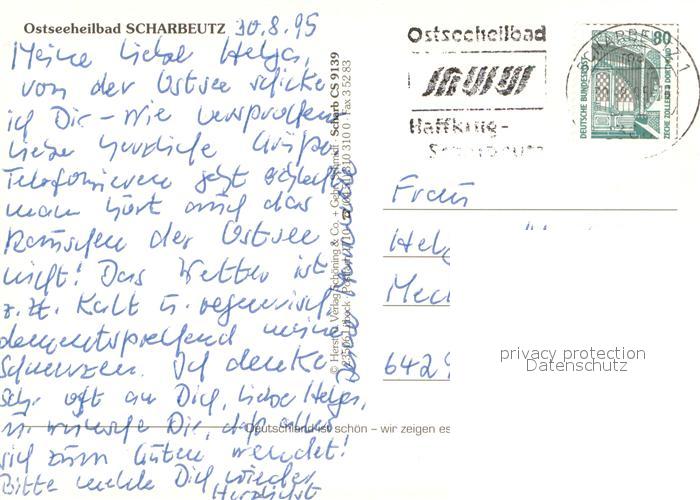 Ostseeheilbad SCHARBEUTZ 30.8.95
Meine liebe Helga,
von der Ostsee schicke
ich Dir – wie versprochen
liebe herzliche Grüße.
Telefonieren jetzt
man hört auch das
Rauschen der Ostsee
nicht! Das Wetter ist
z.Zt. kalt u. regnerisch
dementsprechend meine
Schmerzen. Ich denke
sehr oft an Dich, liebe Helga,
u. wünsche Dir, daß alles
sich zum Guten wendet!
Bitte melde Dich wieder
Herzlichst
Deine
© Herst. u. Verlag Schöning & Co. + Gebr. Schmidt
Scharb CS 9139
Fax 3 52 83
Ostseeheilbad
Haffkrug-
Scharbeutz
SCHARBEUTZ 1
80
DEUTSCHE BUNDESPOST
ZECHE ZOLLERN II DORTMUND
Frau
Hel
Me
6429
Deutschland ist schön – wir zeigen es
privacy protection
Datenschutz